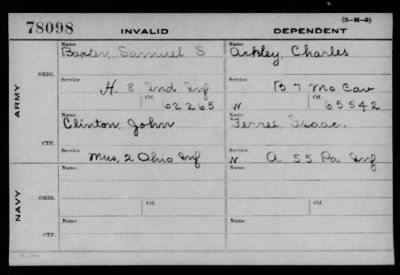 78098 INVALID DEPENDENT (3-H-3)
ARMY
ORIG.
Name Baxter, Samuel S Name Ackley, Charles
Service H. 8. Ind Inf Service B 7 Mo Cav
Ctf. 62265 W Ctf. 65542
CTF.
Name Clinton, John Name Ferree Isaac.
Service Mus, 2 Ohio Inf Service W A 55 Pa Inf
NAVY
ORIG.
Name Name
Service Ctf. Service Ctf.
CTF.
Name Name